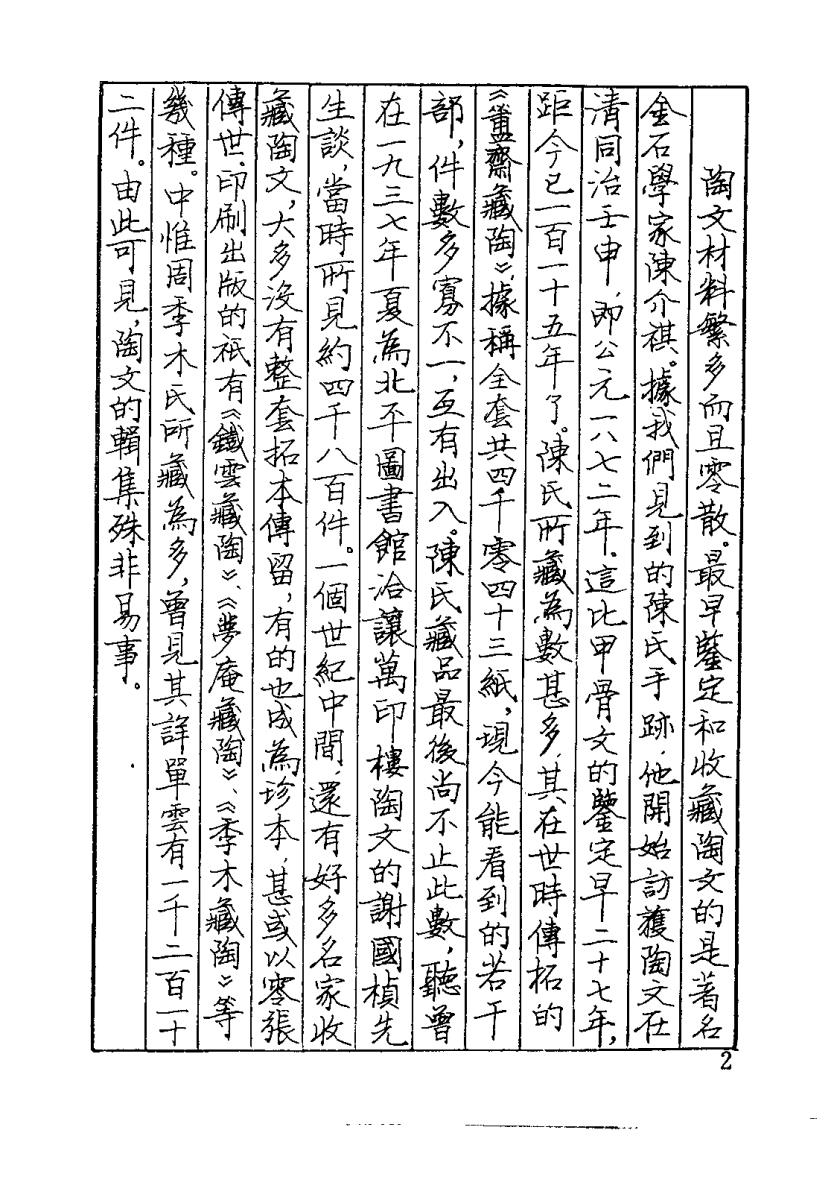 陶文材料繁多而且零散。最早鑒定和收藏陶文的是著名
金石學家陳介祺。據我們見到的陳氏手跡，他開始訪獲陶文在
清同治壬申，即公元一八七二年。這比甲骨文的鑒定早二十七年，
距今已一百一十五年了。陳氏所藏為數甚多，其在世時傳拓的
《簠齋藏陶》，據稱全套共四千零四十三紙，現今能看到的若干
部，件數多寡不一，互有出入。陳氏藏品最後尚不止此數，聽曾
在一九三七年夏為北平圖書館洽讓萬印樓陶文的謝國楨先
生談，當時所見約四千八百件。一個世紀中間，還有好多名家收
藏陶文，大多沒有整套拓本傳留，有的也成為珍本，甚或以零張
傳世，印刷出版的祇有《鐵雲藏陶》、《夢庵藏陶》、《季木藏陶》等
幾種。中惟周季木氏所藏為多，曾見其詳單雲有一千二百一十
二件。由此可見，陶文的輯集殊非易事。
2